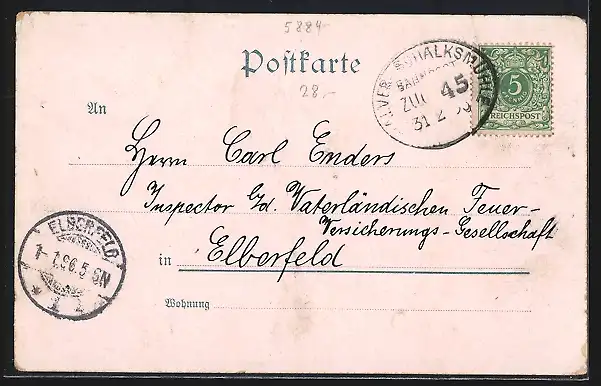 5884-
Postkarte
28.-
SCHALKSMÜHLE
BAHNPOST
ZUG 45
5
REICHSPOST
An
Herrn Carl Enders
Inspector b/d. Vaterländischen Feuer-
Versicherungs-Gesellschaft
in Elberfeld
ELBERFELD
Wohnung